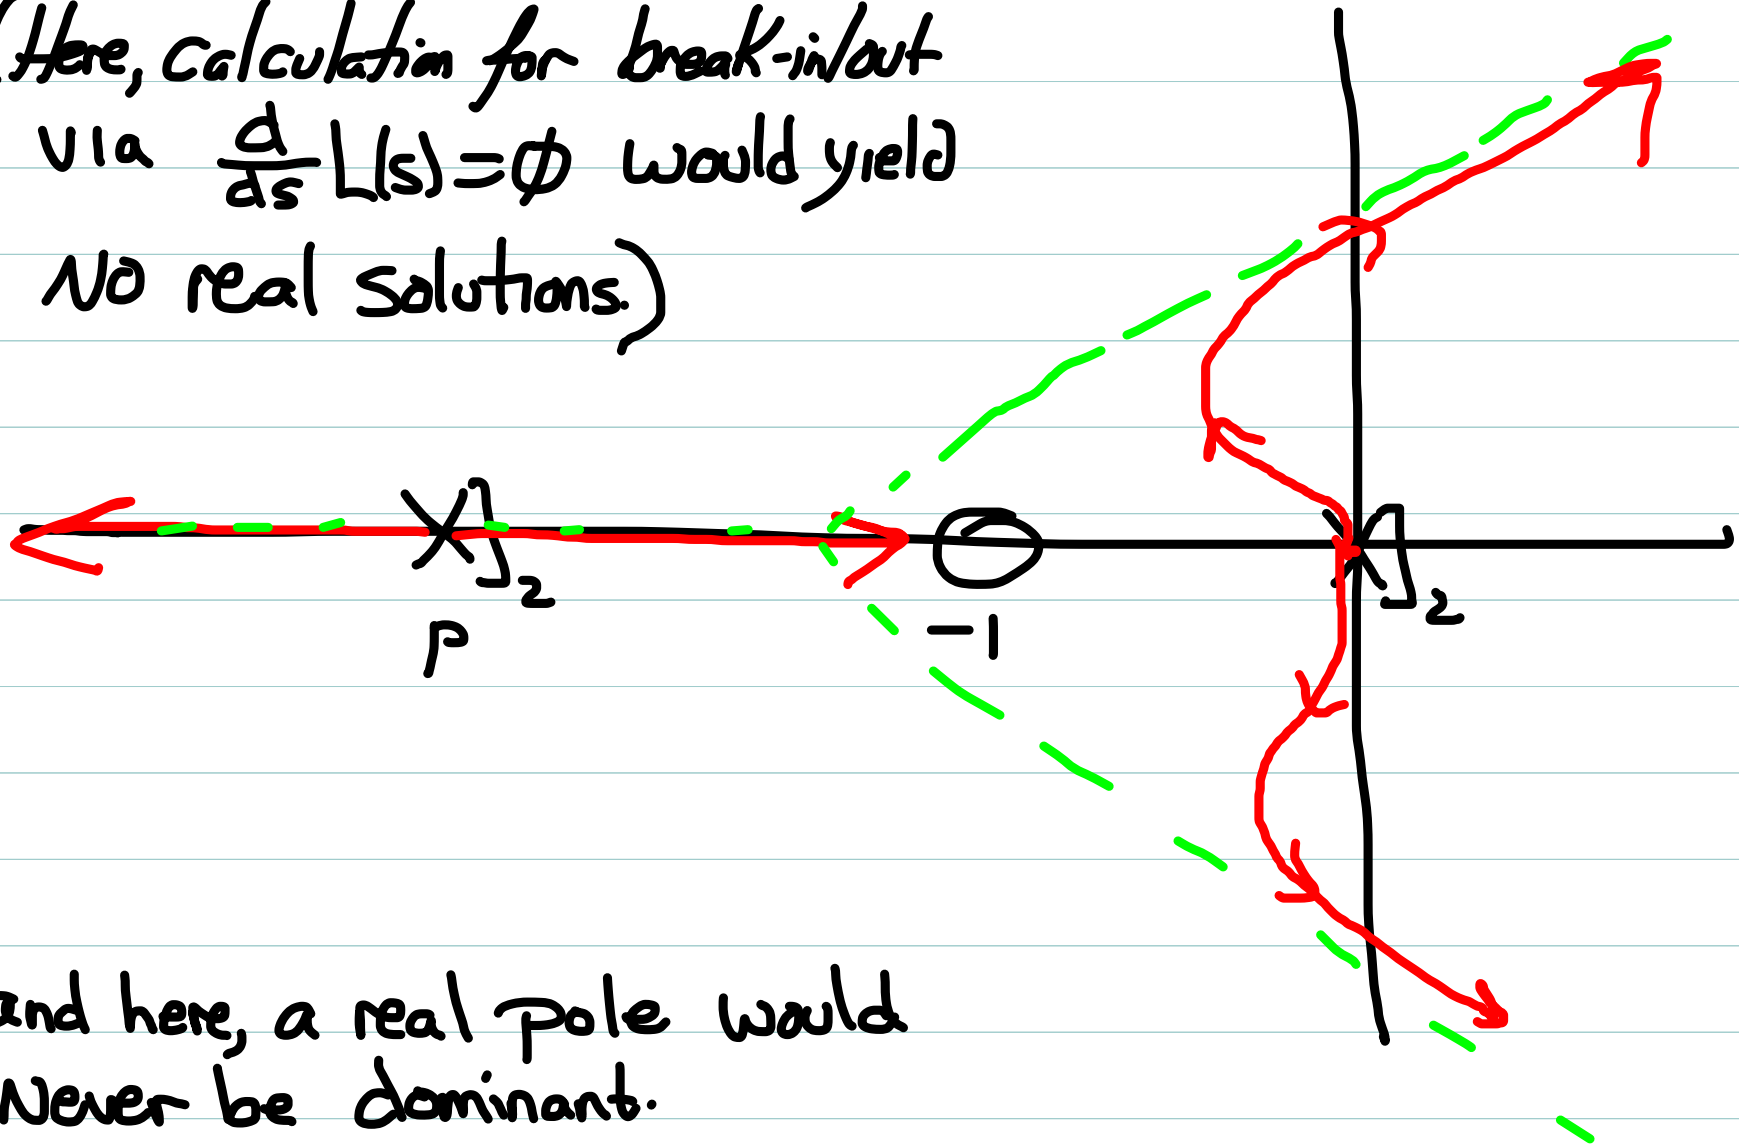 (Here, calculation for break-in/out
via d/ds L(s)=∅ would yield
No real solutions.)
]2
]2
P
-1
and here, a real pole would
Never be dominant.